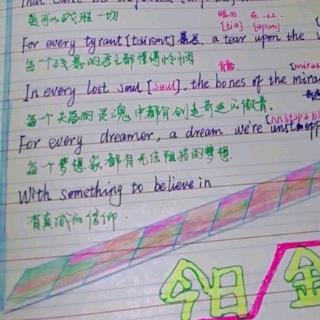 真可以战胜一切
眼泪
[tiə] [əpɒn]
For every tyrant [tairənt] 暴君, a tear upon the
每个残暴的君主都懂得怜悯
In every lost soul [səul], the bones of the mira
每个失落的灵魂中都有创造奇迹的傲骨
For every dreamer, a dream we're unstopp
每个梦想家都有无法阻挡的梦想.
With something to believe in
有真诚的信仰.
今日 金